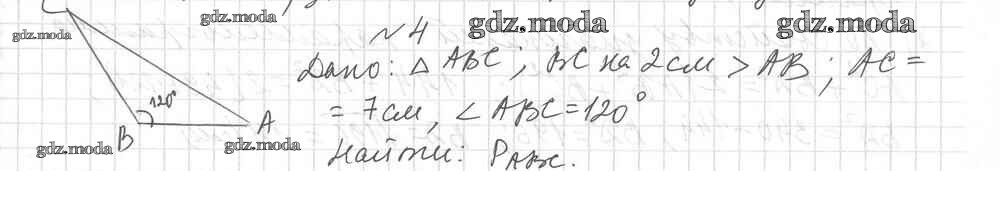 C gdz.moda
gdz.moda
№4 gdz.moda gdz.moda
Дано: △ ABC; BC на 2 см > AB; AC =
= 7 см, ∠ ABC = 120°
Найти: P ABC.
120°
B A
gdz.moda gdz.moda